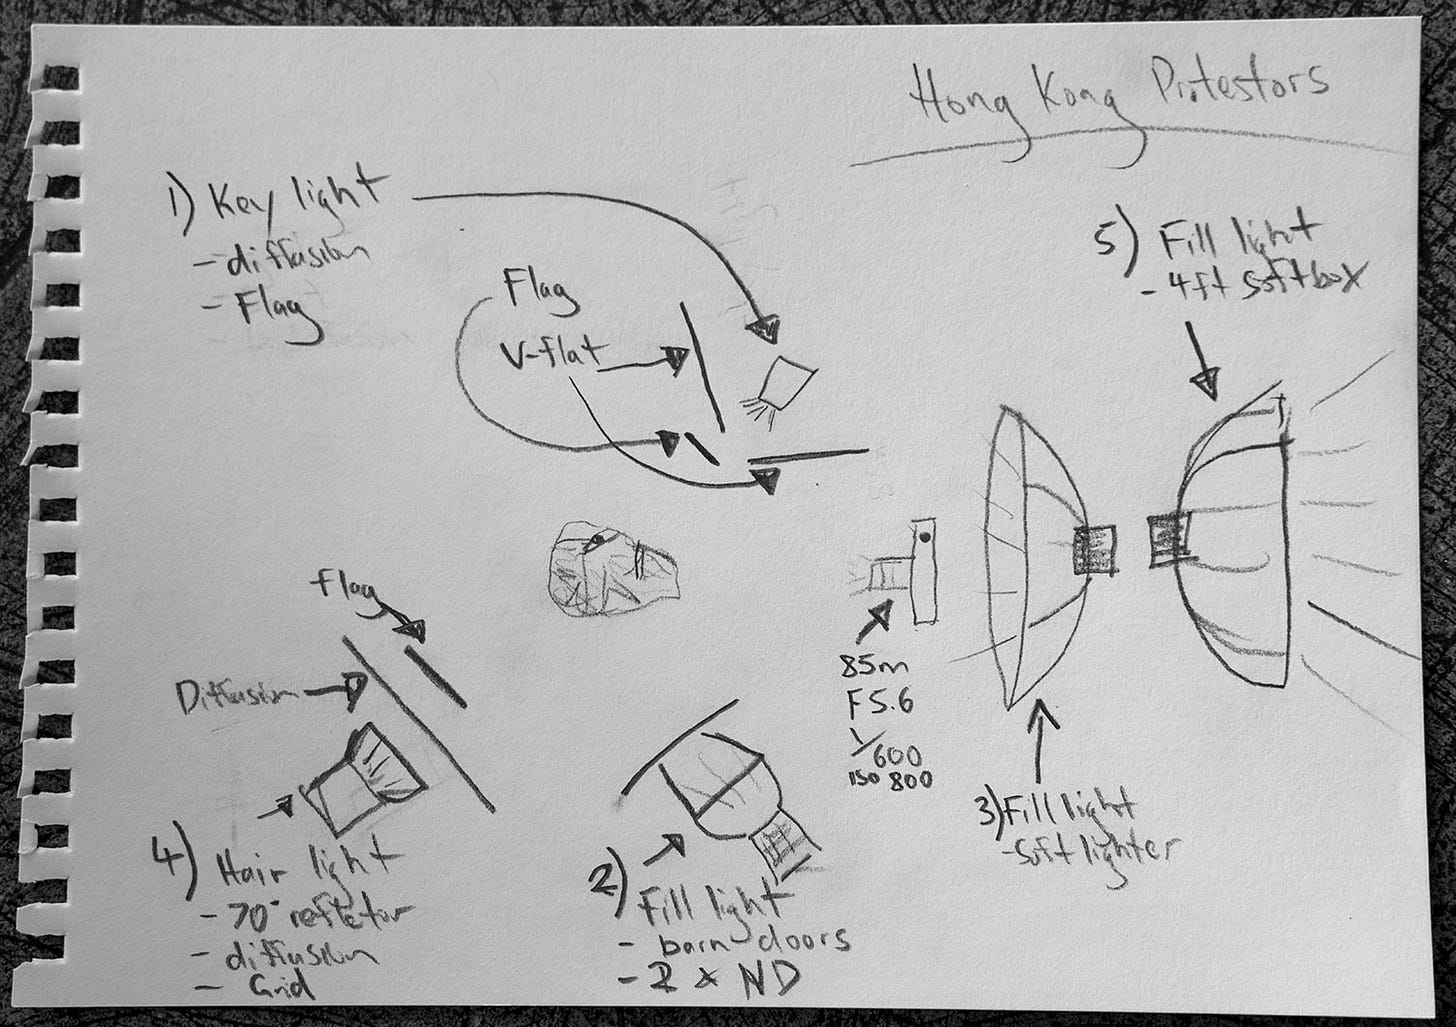 Hong Kong Protestors
1) Key light
- diffusion
- Flag
Flag
V-flat
5) Fill light
- 4ft softbox
flag
Diffusion
85m
F5.6
1/600
ISO 800
3) Fill light
- Soft lighter
4) Hair light
- 70° refletor
- diffusion
- Grid
2) Fill light
- barn doors
- 2 x ND